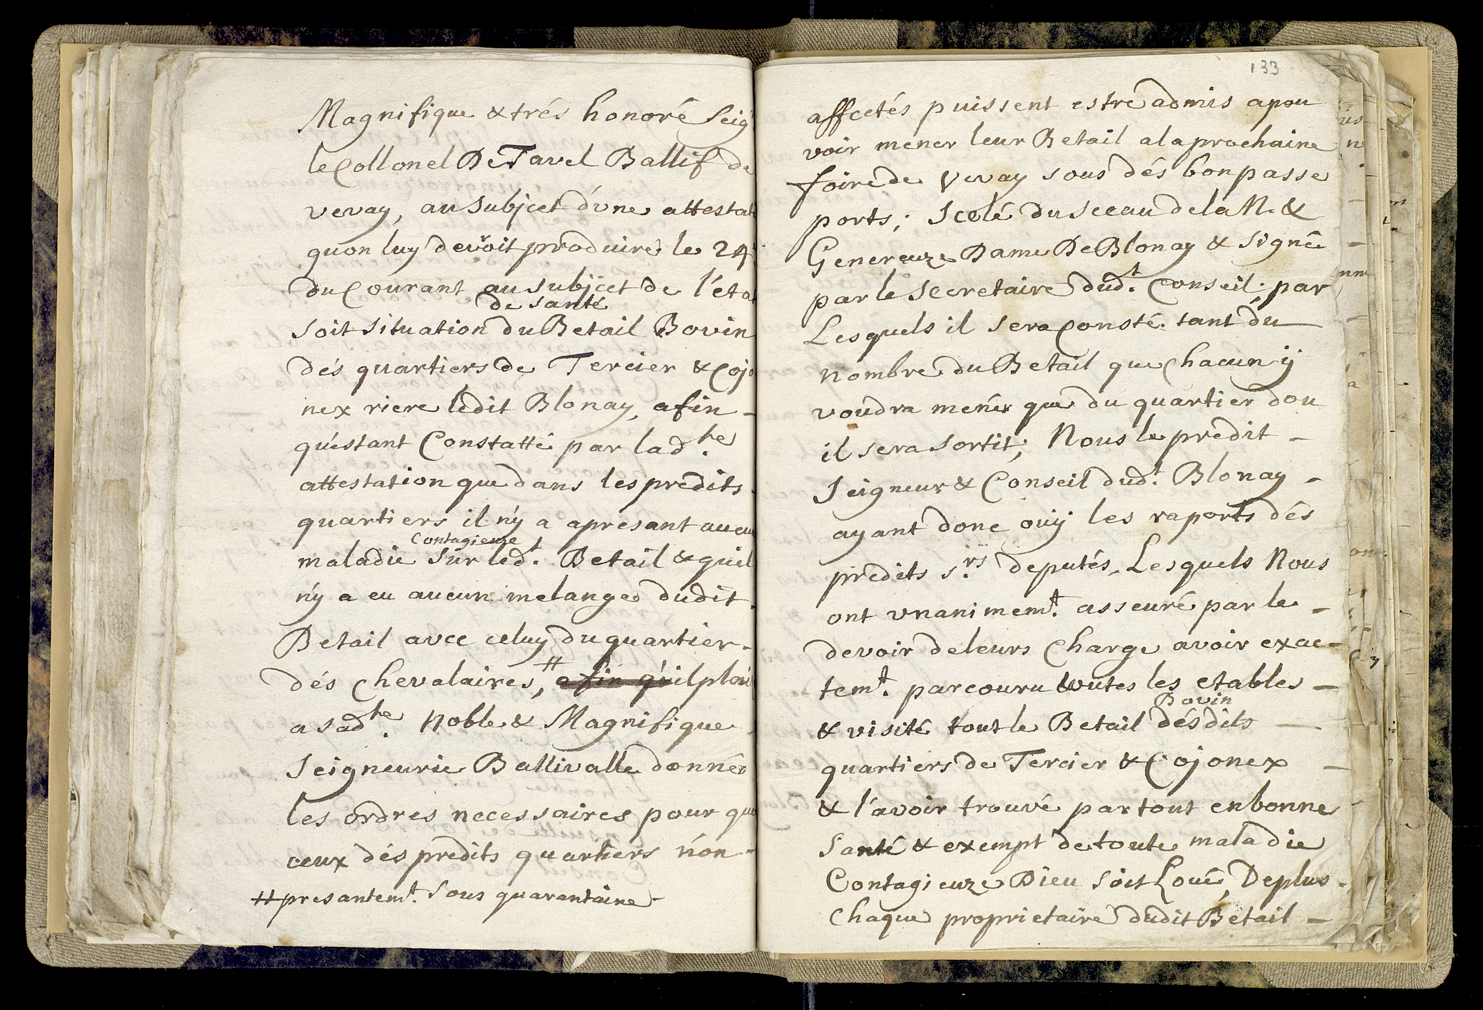 Magnifique & trés honoré Seig
le Collonel De Tavel Ballif de
vevay, au Subjcet d'vne attestat
quon luy devroit produire le 24
du Courant au subjcet de l'éta
de santé
soit situation du Betail Bovin
dés quartiers de Tercier & Cojo
nex riere ledit Blonay, afin -
qu'estant Constatté par lad.he
attestation que dans les predits
quartiers il n'y a apresant aucu
Contagieuse
maladie sur led.t Betail & quil
n'y a eu aucun melange dudit
Betail avec celuy du quartier -
dés Chevalaires, # afin qu'il plai
a sad.he Noble & Magnifique
Seigneurie Ballivalle donner
les ordres necessaires pour que
ceux dés predits quartiers non -
# presantem.t sous quarantaine -
133
affectés puissent estre admis a pou
voir mener leur Betail a la prochaine
foire de Vevay sous dés bon passe
ports; Scelé du sceau de la N. &
Genereuze Dame De Blonay & signé
par le Secretaire dud.t Conseil; par
Lesquels il sera Consté tant du
nombre du Betail que Chacun ÿ
voudra mener que du quartier dou
il sera sortit; Nous le predit -
Seigneur & Conseil dud.t Blonay -
ayant donc oüÿ les raports dés
predits s.rs deputés, Lesquels Nous
ont vnanimem.t asseuré par le -
devoir de leurs Charge avoir exac-
tem.t parcouru toutes les etables -
Bovin
& visité tout le Betail désdits -
quartiers de Tercier & Cojonex -
& l'avoir trouvé par tout en bonne
Santé & exempt de toute maladie
Contagieuze Dieu soit Loué, De plus -
Chaque proprietaire dudit Betail -